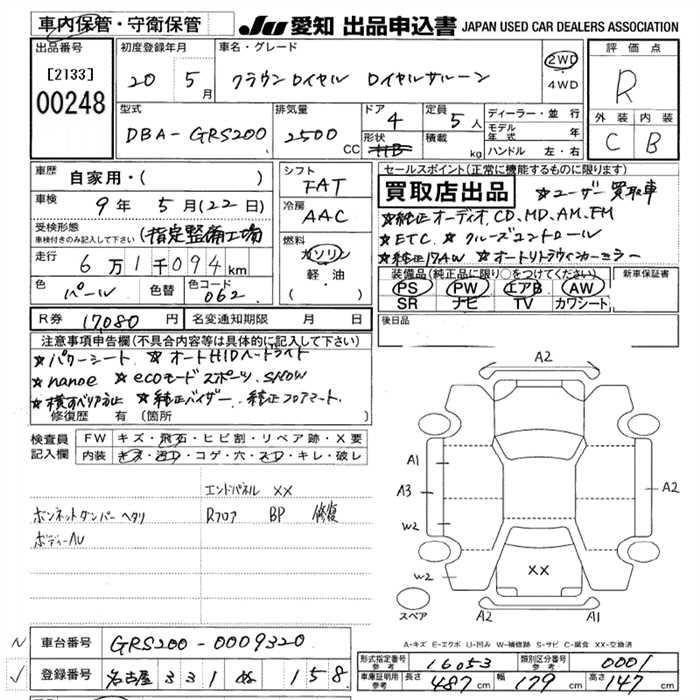 車内保管・守衛保管
JU 愛知 出品申込書 JAPAN USED CAR DEALERS ASSOCIATION
出品番号
[2133]
00248
初度登録年月
20 5月
車名・グレード
クラウンロイヤル ロイヤルサルーン
2WD
・4WD
評価点
R
外装 内装
C B
型式
DBA-GRS200
排気量
2500 CC
ドア 4
形状 HB
定員 5人
積載 kg
ディーラー・並行
モデル年式 年
ハンドル 左・右
車歴 自家用・( )
車検 9年 5月(22日)
受検形態
車検付きのみ記入して下さい (指定整備工場
走行 6万1千094km
色 パール
色替
色コード 062
シフト
FAT
冷房
AAC
燃料
ガソリン
軽・油
( )
セールスポイント(正常に機能するものに限ります)
買取店出品 ☆ユーザー買取車
☆純正オーディオ.CD.MD.AM.FM
☆ETC ☆クルーズコントロール
☆純正17AW ☆オートリトラウィンカーミラー
装備品(純正品に限り○をつけてください)
PS PW エアB AW
SR ナビ TV カワシート
新車保証書
R券 17080円 名変通知期限 月 日
後日品
注意事項申告欄(不具合内容等は具体的に記入して下さい)
☆パワーシート ☆オートHIDヘッドライト
☆nanoe ☆ecoモード スポーツ.SNOW
☆横すべり防止 ☆純正バイザー.純正フロアマート.
修復歴 有 (箇所
検査員
記入欄
FW キズ・飛石・ヒビ割・リペア跡・X要
内装 キズ・汚れ・コゲ・穴・スレ・キレ・破レ
エンドパネル XX
ボンネットダンパー ヘタリ Rフロア BP 修復
ボディーAU
A2
A1
A3
W2
A2
XX
W2
スペア
A2 A1
A-キズ E-エクボ U-凹み W-補修跡 S-サビ C-腐食 XX-交換済
N 車台番号 GRS200-0009320
✓ 登録番号 名古屋 331 ぬ 158
形式指定番号 参考 16053 類別区分番号 参考 0001
車庫証明用 参考 長さ 487cm 幅 179cm 高さ 147cm